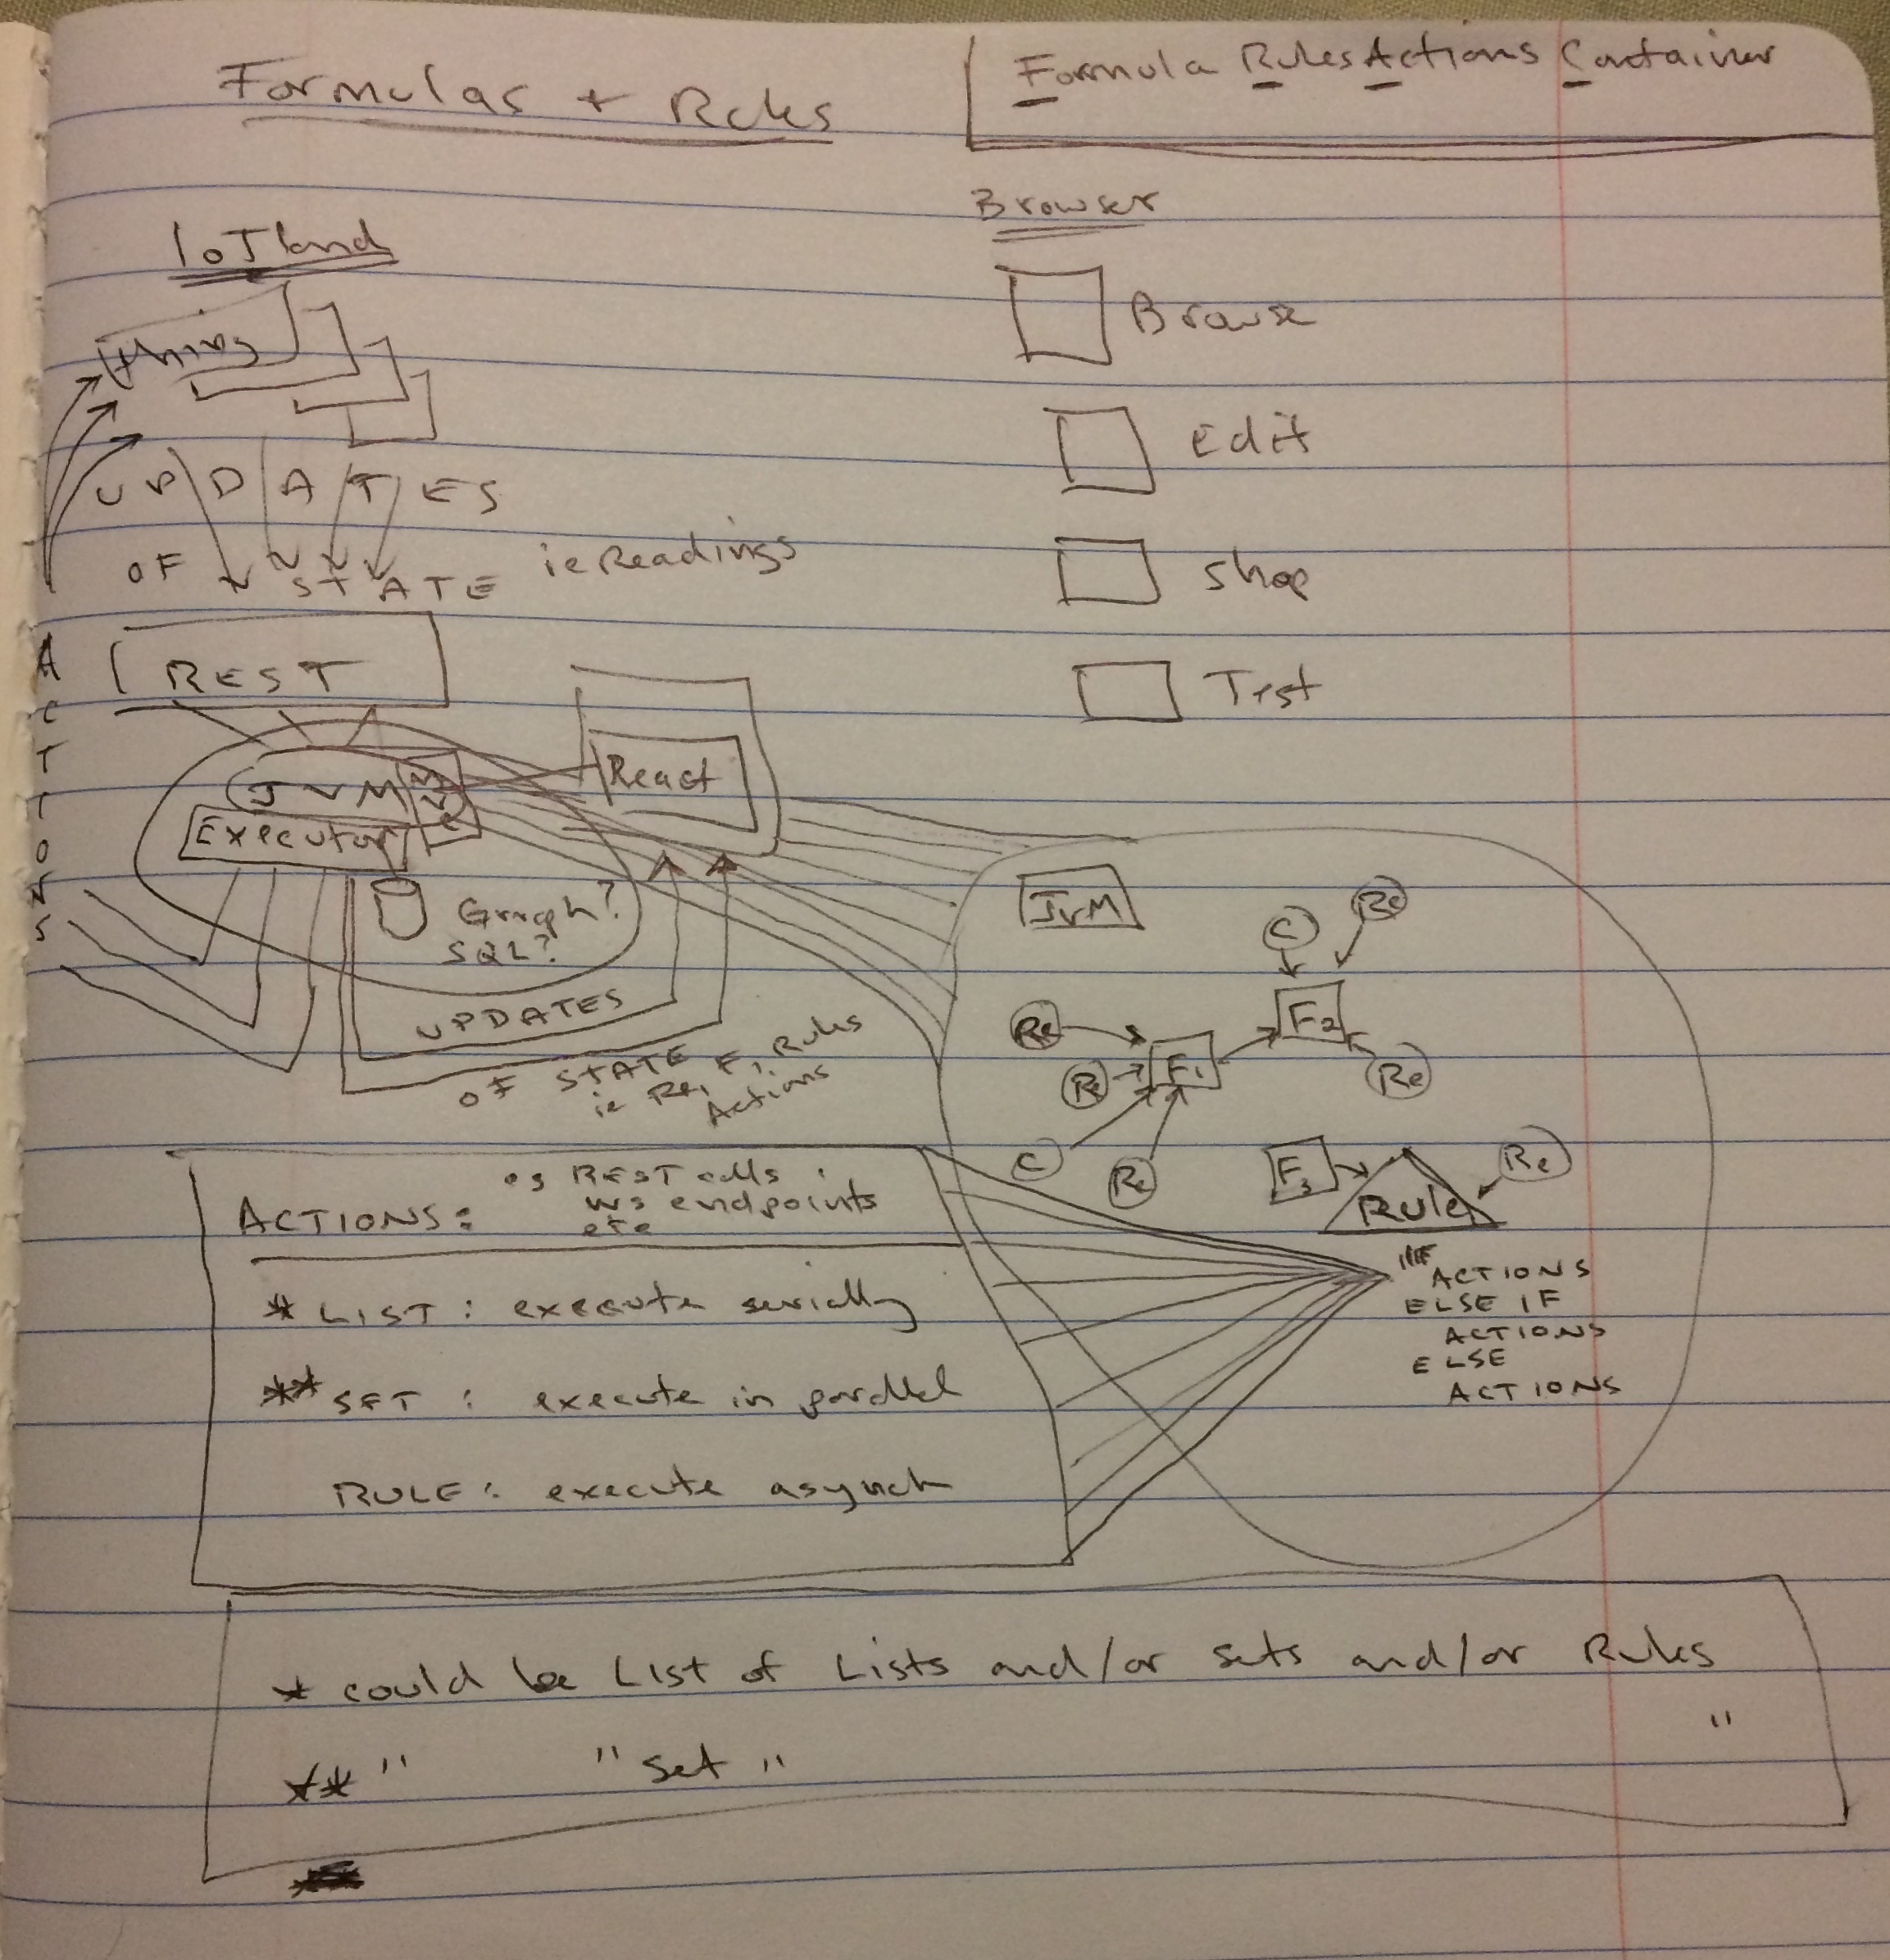 Formulas + Rules
Formula Rules Actions Container
Browser
Browse
Edit
Shop
Test
IoT land
things
UPDATES
OF STATE ie Readings
ACTIONS
REST
JVM
MVC
Executor
React
Graph?
SQL?
UPDATES
OF STATE
ie Re, F, Rules
Actions
JVM
C
Re
F2
Re
Re
F1
Re
Re
C
Re
F3
Rule
Re
IF
ACTIONS
ELSE IF
ACTIONS
ELSE
ACTIONS
ACTIONS: eg REST calls
ws endpoints
etc
* LIST : execute serially
** SET : execute in parallel
RULE : execute asynch
* could be List of Lists and/or sets and/or Rules
** " " set " "